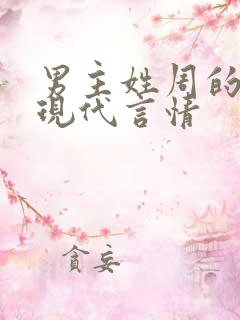 男主姓周的
現代言情
貪妄